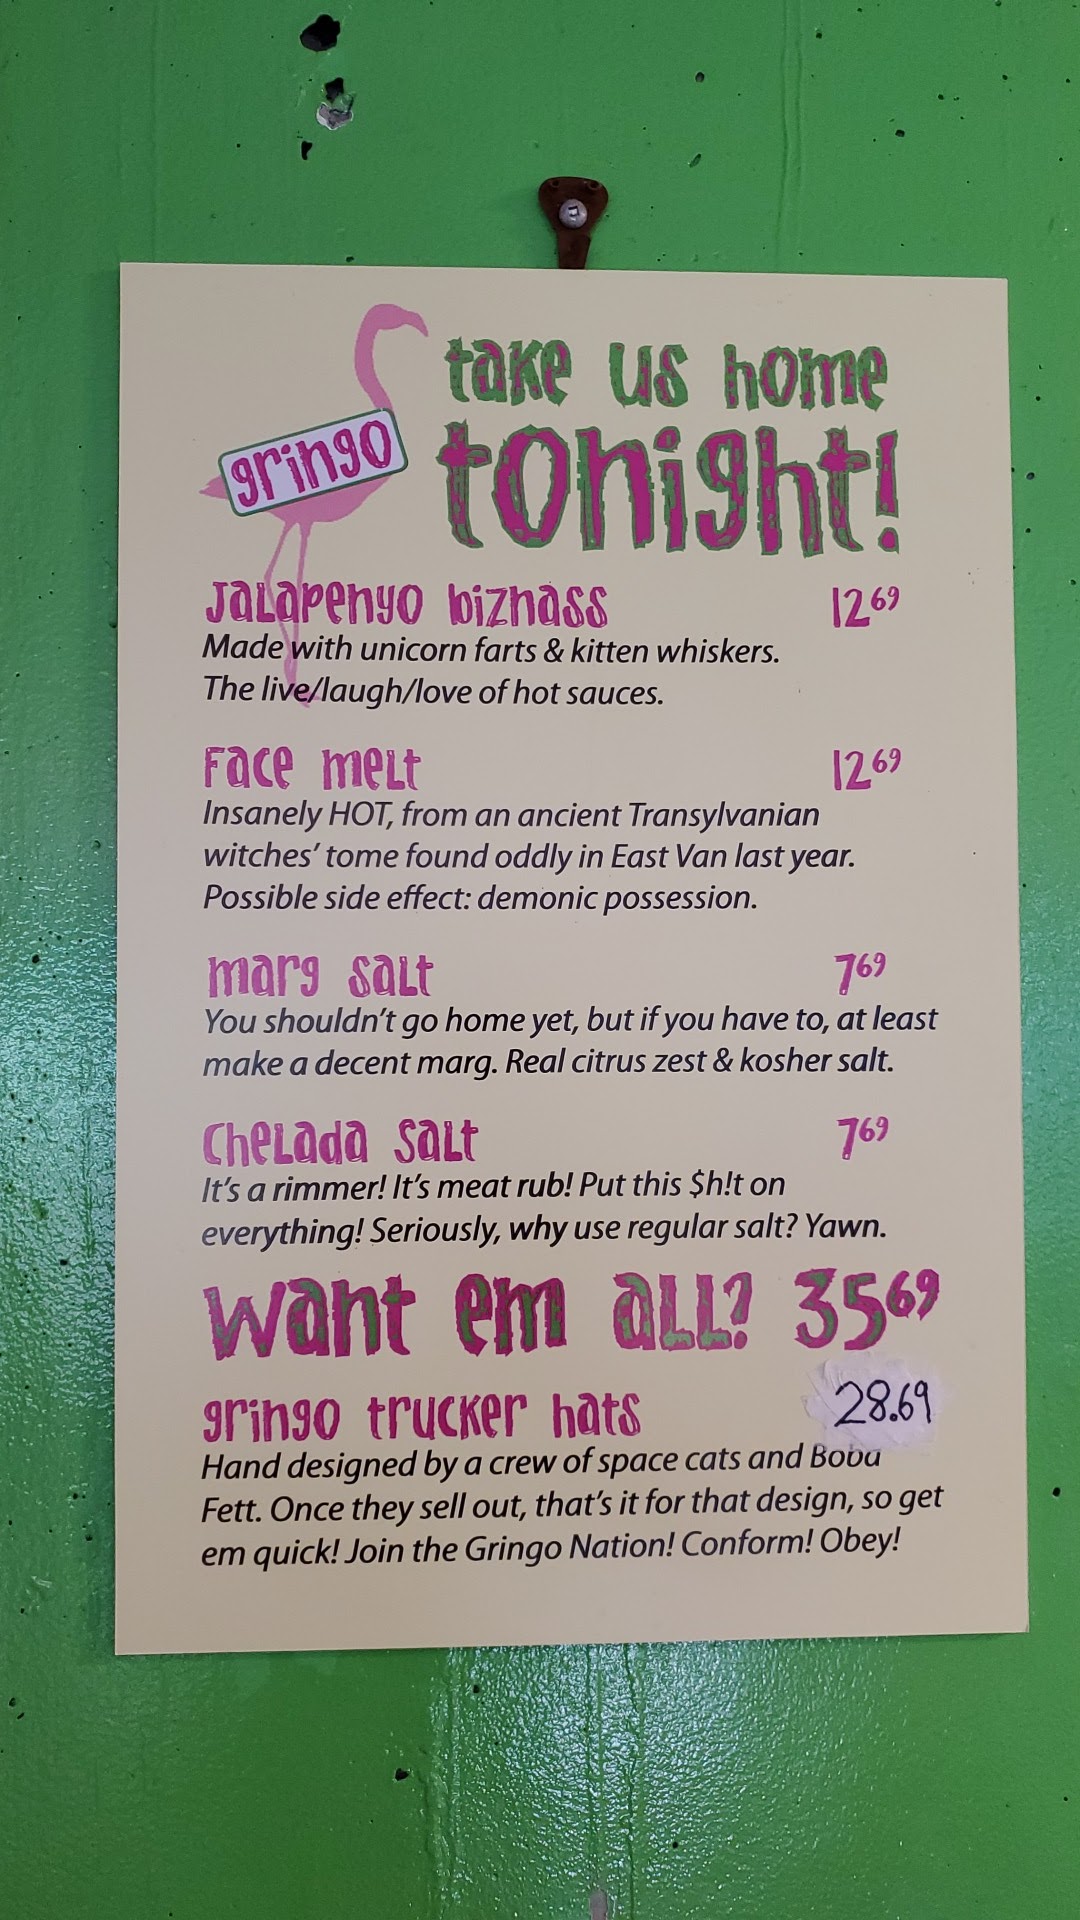 gringo
take us home
tonight!
Jalapenyo biznass 12 69
Made with unicorn farts & kitten whiskers.
The live/laugh/love of hot sauces.
Face melt 12 69
Insanely HOT, from an ancient Transylvanian
witches' tome found oddly in East Van last year.
Possible side effect: demonic possession.
marg salt 7 69
You shouldn't go home yet, but if you have to, at least
make a decent marg. Real citrus zest & kosher salt.
Chelada Salt 7 69
It's a rimmer! It's meat rub! Put this $h!t on
everything! Seriously, why use regular salt? Yawn.
want em all? 35 69
gringo trucker hats 28.69
Hand designed by a crew of space cats and Boba
Fett. Once they sell out, that's it for that design, so get
em quick! Join the Gringo Nation! Conform! Obey!